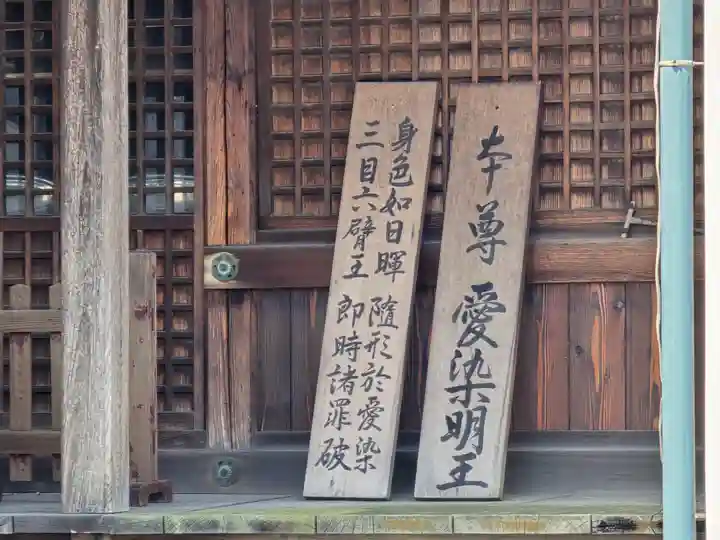 本尊 愛染明王
身色如日暉 随形於愛染
三目六臂王 即時諸罪破